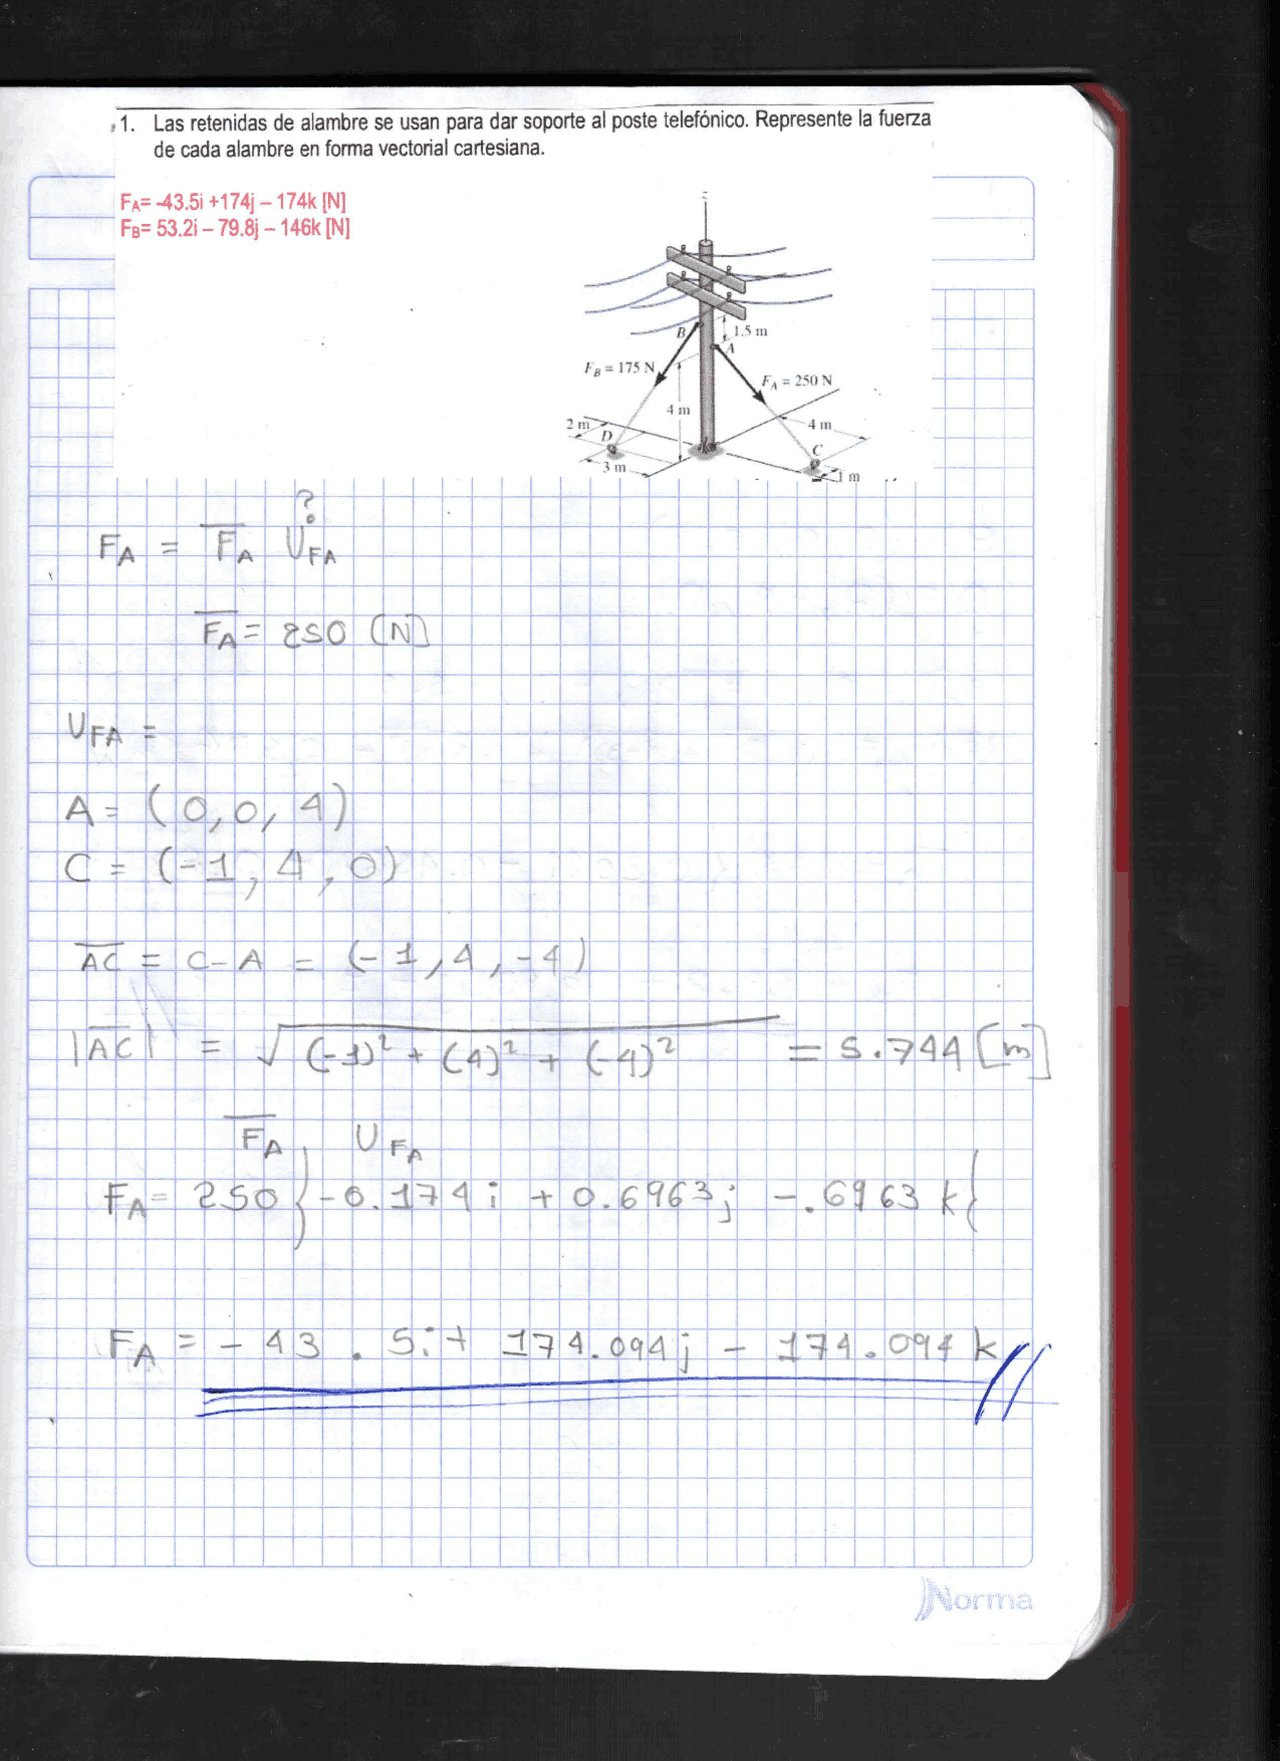 1. Las retenidas de alambre se usan para dar soporte al poste telefónico. Represente la fuerza
de cada alambre en forma vectorial cartesiana.
FA= -43.5i +174j – 174k [N]
FB= 53.2i – 79.8j – 146k [N]
B
1.5 m
A
FB = 175 N
FA = 250 N
4 m
2 m
D
4 m
C
3 m
1 m
?
FA = FA UFA
FA = 250 [N]
UFA =
A = (0, 0, 4)
C = (-1, 4, 0)
AC = C - A = (-1, 4, -4)
|AC| = √(-1)² + (4)² + (-4)² = 5.744 [m]
FA UFA
FA = 250 }-0.174 i + 0.6963 j - .6963 k{
FA = - 43 . 5i + 174.094 j - 174.094 k //
Norma